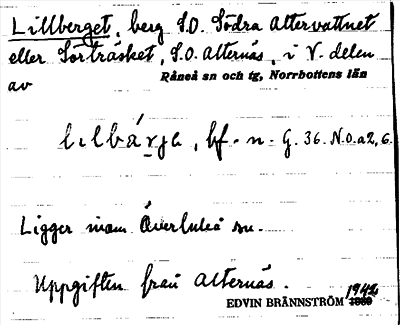 Lillberget, berg S.O. Södra Altervattnet
eller Sörträsket, S.O. Alternäs, i V. delen
av Råneå sn och tg, Norrbottens län
lilbárja, bf. n. G. 36. N.O. a2, 6.
Ligger inom Överluleå sn.
Uppgiften från Alternäs.
EDVIN BRÄNNSTRÖM 1942